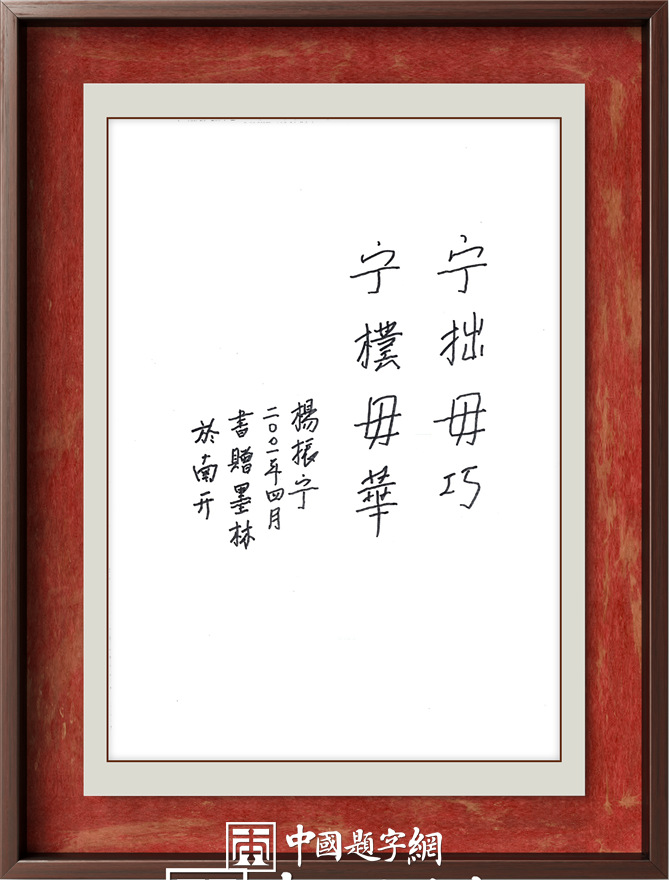 宁拙毋巧
宁樸毋華
楊振宁
二〇〇一年四月
書贈墨林
於南开
中國題字網